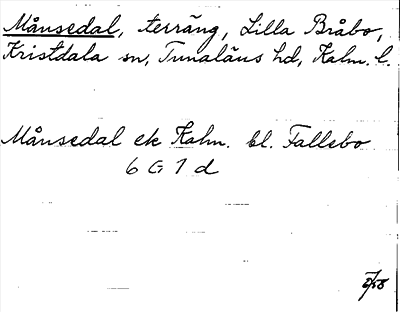 Månsedal, terräng, Lilla Bråbo,
Kristdala sn, Tunaläns hd, Kalm. l.
Månsedal ek Kalm. bl. Fallebo
6 G 7 d